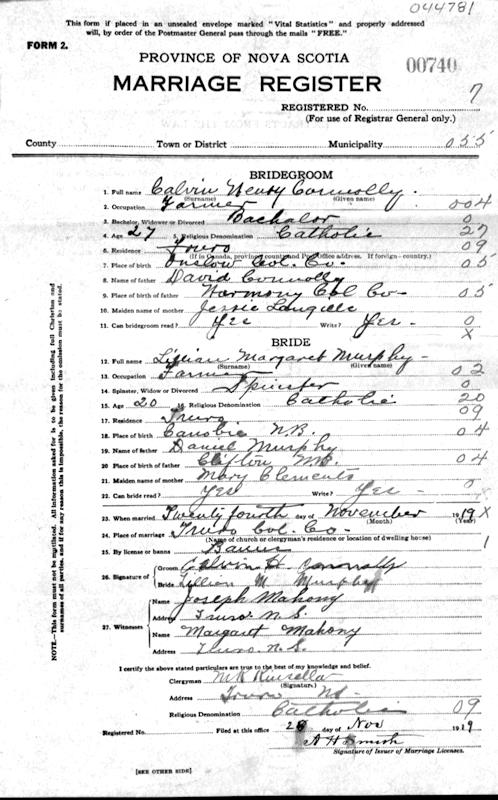 044781
This form if placed in an unsealed envelope marked "Vital Statistics" and properly addressed
will, by order of the Postmaster General pass through the mails "FREE."
FORM 2.
PROVINCE OF NOVA SCOTIA
00740
MARRIAGE REGISTER
7
REGISTERED No.
(For use of Registrar General only.)
County Town or District Municipality 055
BRIDEGROOM
1. Full name Calvin Henry Connolly.
(Surname) (Given name)
2. Occupation Farmer 004
3. Bachelor, Widower or Divorced Bachelor 0
4. Age 27 5. Religious Denomination Catholic 27
6. Residence Truro 09
(If in Canada, province, county and Post Office address. If foreign - country.)
7. Place of birth Onslow Col. Co. 05
8. Name of father David Connolly
9. Place of father Harmony Col Co- 05
10. Maiden name of mother Jessie
11. Can bridegroom read? Yes Write? Yes - 0
X
BRIDE
12. Full name Lillian Margaret Murphy -
(Surname) (Given name)
13. Occupation 02
14. Spinster, Widow or Divorced Spinster 0
15. Age 20 Religious Denomination Catholic 20
17. Residence Truro 09
18. Place of birth Canobie N.B. 04
19. Name of father Daniel Murphy
20. Place of birth of father Clifton N.B. 04
21. Maiden name of mother Mary Clements
22. Can bride read? Yes Write? Yes - 0
23. When married Twenty fourth day of November 1919 X
(Month) (Year)
24. Place of marriage Truro Col. Co-
(Name of church or clergyman's residence or location of dwelling house)
25. By license or banns Banns 1
26. Signature of Groom Calvin H. Connolly
Bride Lillian M. Murphy
27. Witnesses
Name Joseph Mahony
Address Truro N.S.
Name Margaret Mahony
Address Truro. N.S.
I certify the above stated particulars are true to the best of my knowledge and belief.
Clergyman Kinsella
(Signature)
Address Truro NS
Religious Denomination Catholic 09
Registered No. Filed at this office day of Nov 1919
Signature of Issuer of Marriage Licenses.
[SEE OTHER SIDE]
NOTE.—This form must not be mutilated. All information asked for is to be given including full Christian and
surnames of all parties, and if for any reason this is impossible, the reason for the omission must be stated.